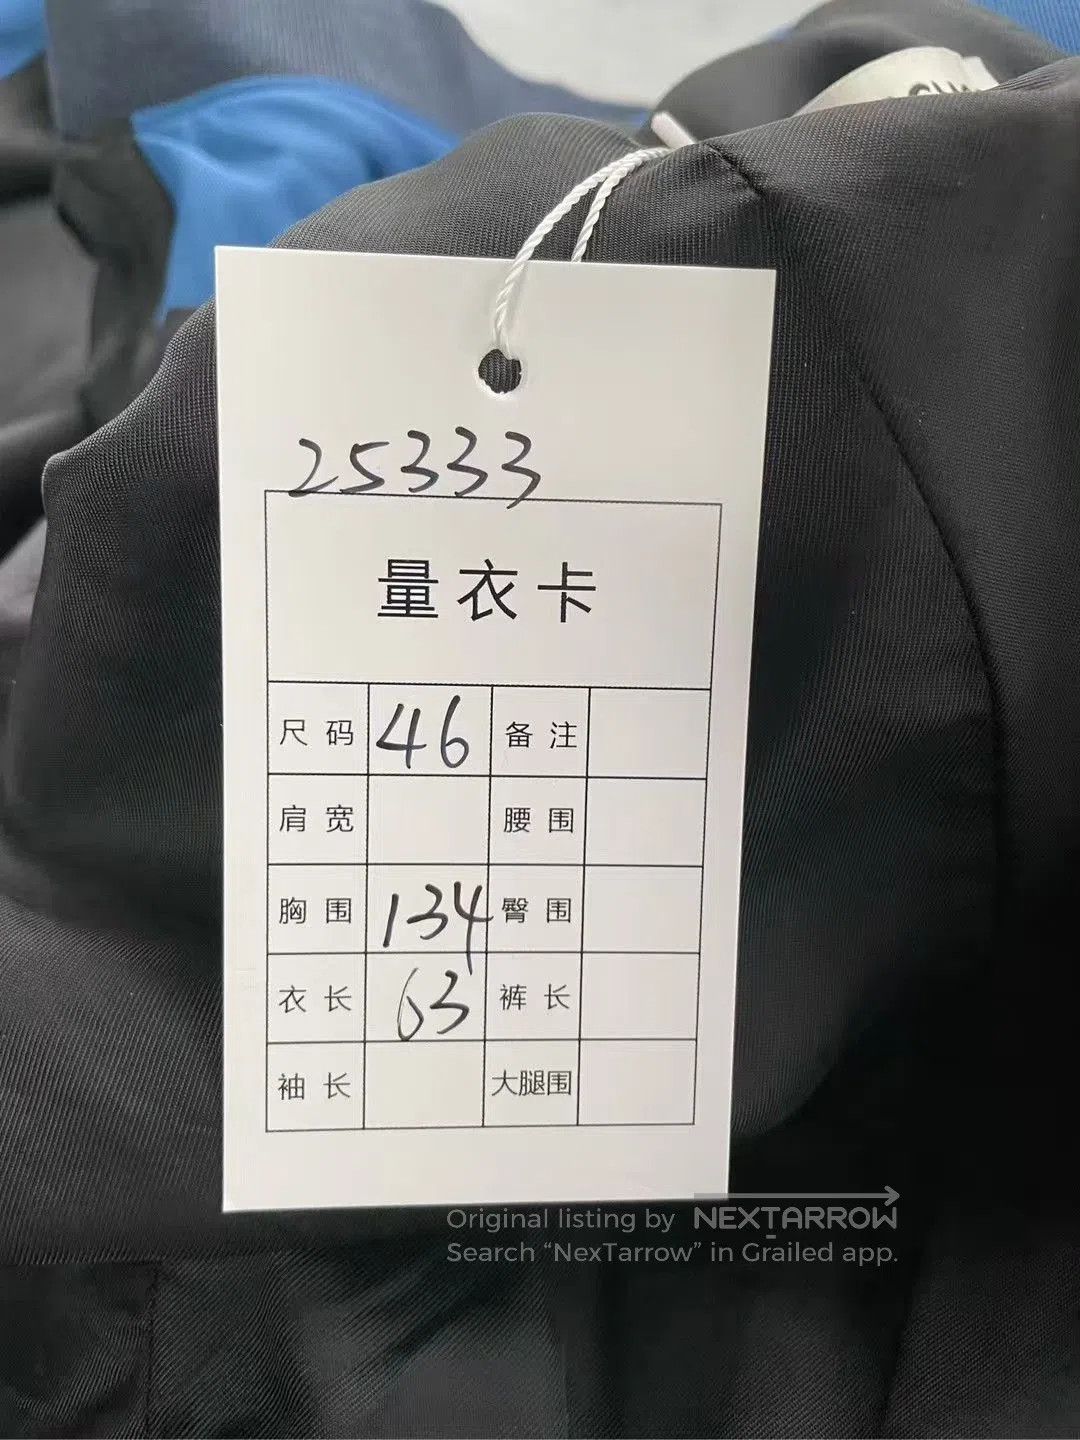 25333
量衣卡
尺码 46 备注
肩宽 腰围
胸围 134 臀围
衣长 63 裤长
袖长 大腿围
Original listing by NEXTARROW
Search “NexTarrow” in Grailed app.